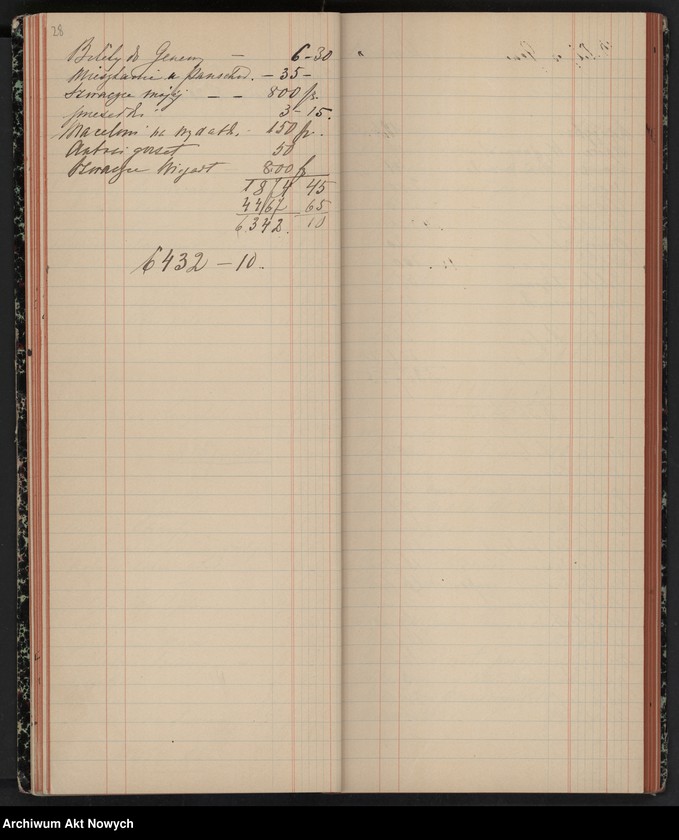 28
Bilety do Genewy — 6-30
Mieszkanie w Pansched. - 35 -
Szwaczce mojej — — 800 fr.
3 - 15.
Marceloni na wydatk. 150 fr.
Antosi gorset 50
Szwaczce 800 fr
1874 45
4467 65
6.342. 10
6432 - 10.
Archiwum Akt Nowych